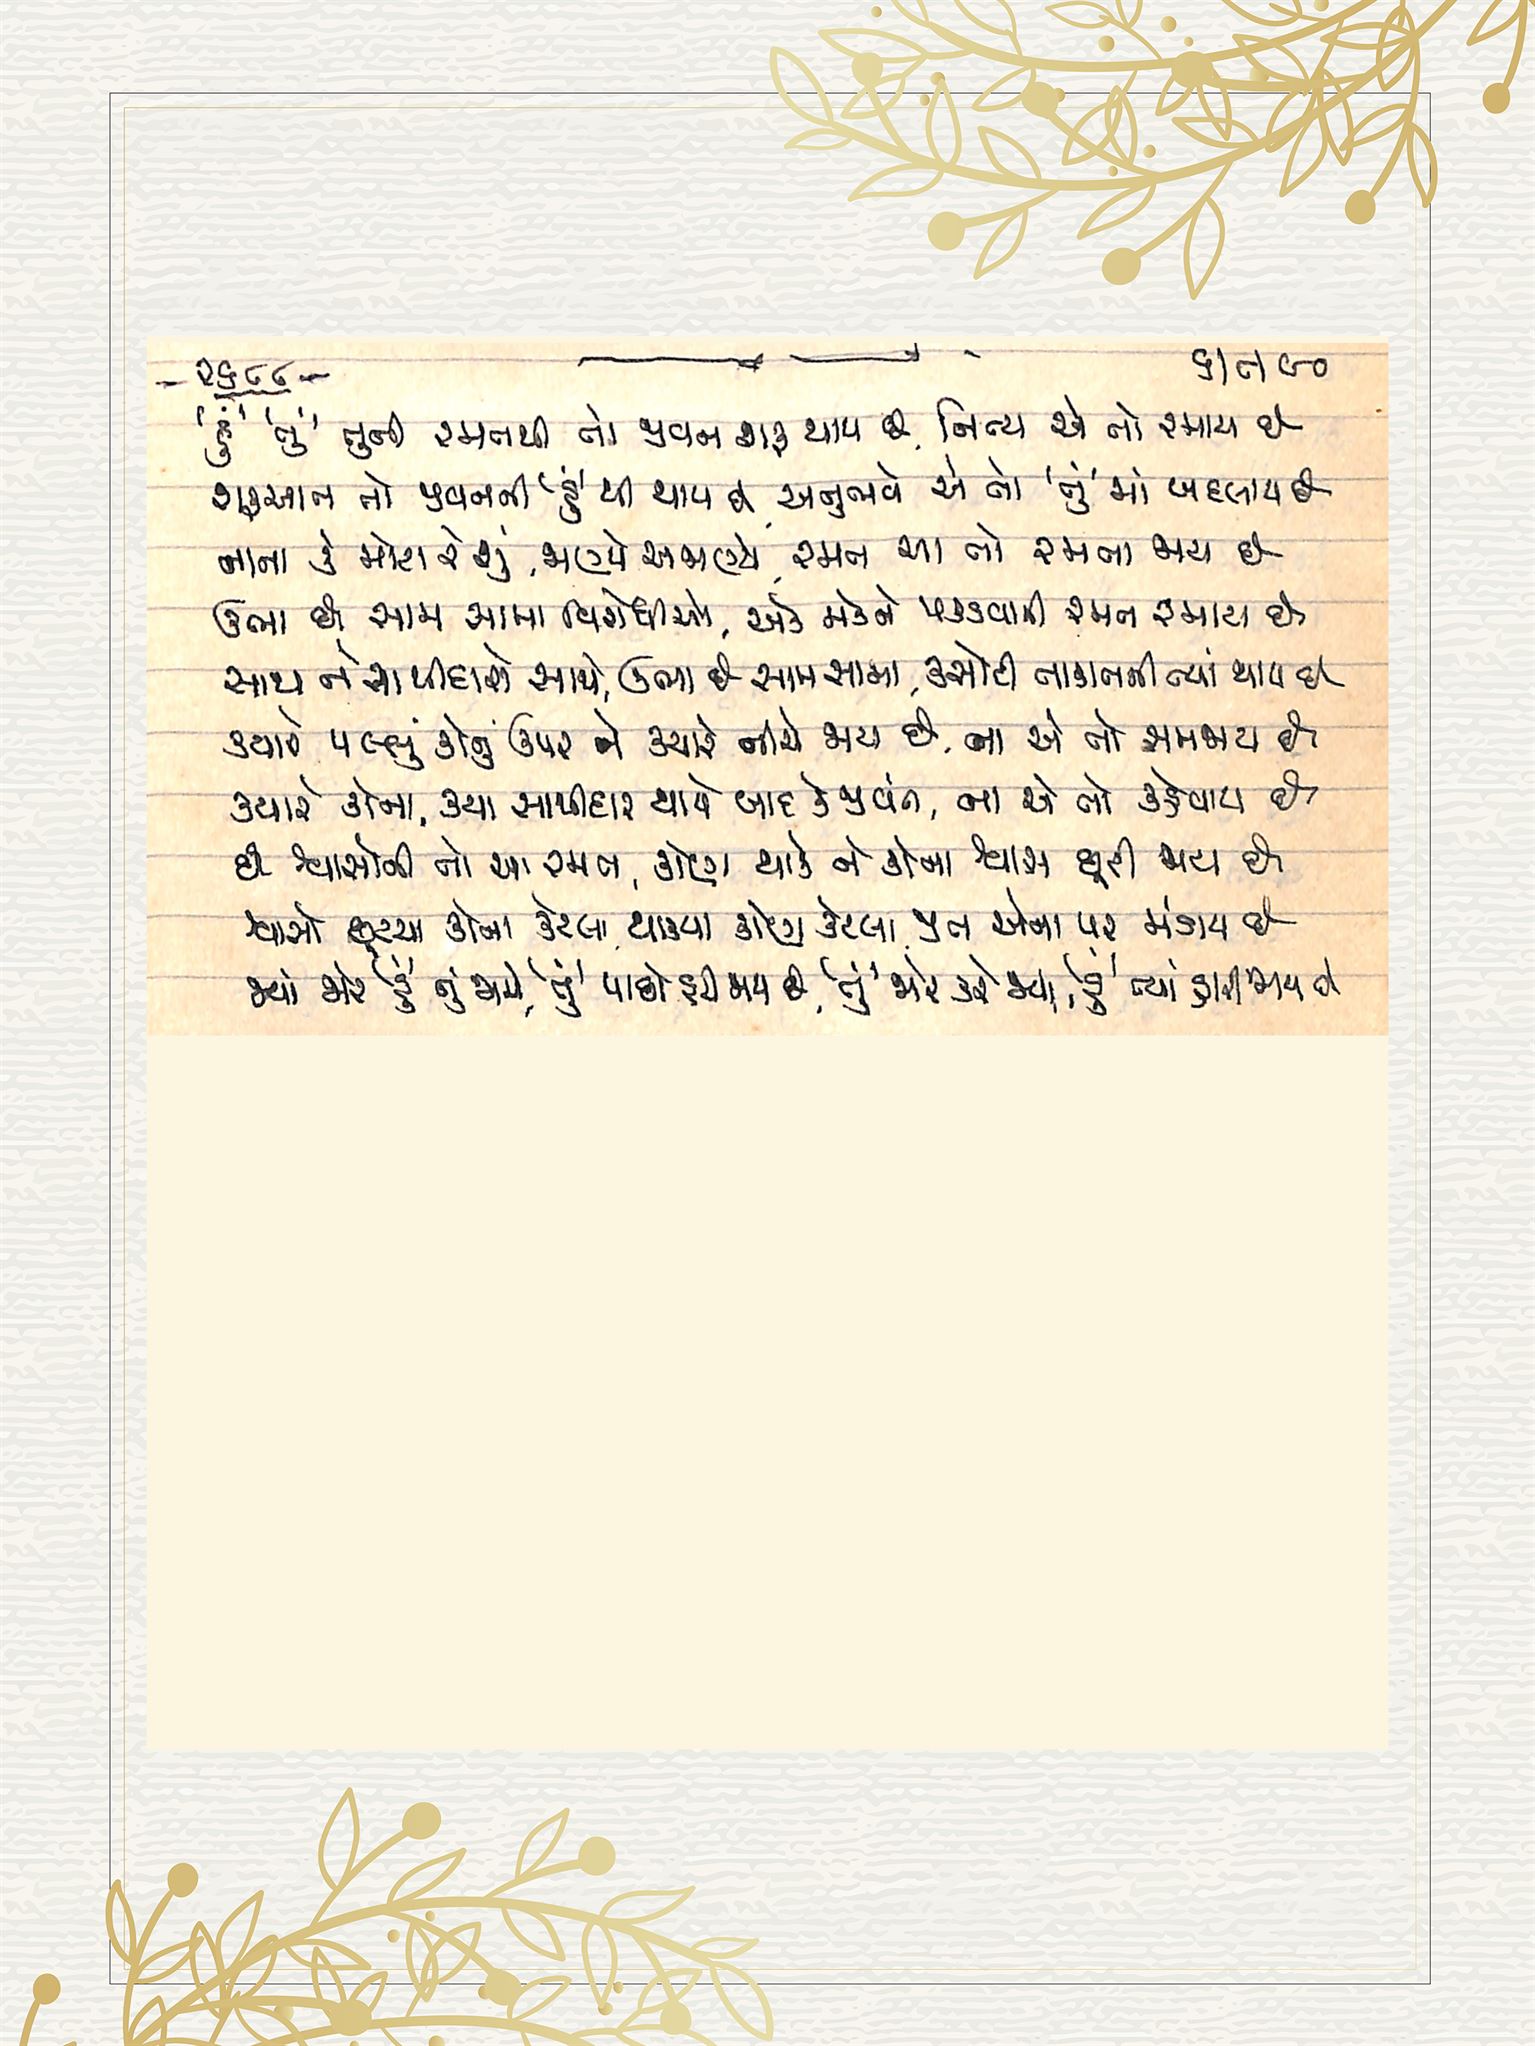 - ૨૬૮૮ - ૬।૮।૯૦
'હું' 'તું' તુની રમતથી તો જીવન શરૂ થાય છે, નિત્ય એ તો રમાય છે
શરૂઆત તો જીવનની 'હું' થી થાય છે, અનુભવે એ તો 'તું' માં બદલાય છે
નાના કે મોટા રે શું, જાણ્યે અજાણ્યે, રમત આ તો રમતા જાય છે
ઉભા છે સામ સામા વિરોધીઓ, એક મેકને પકડવાની રમત રમાય છે
સાથ ને સાથીદારો સાથે, ઉભા છે સામ સામા, કસોટી તાકાતની ત્યાં થાય છે
ક્યારે પલ્લું કોનું ઉપર ને ક્યારે નીચે જાય છે, ના એ તો સમજાય છે
ક્યારે કોના, ક્યા સાથીદાર થાયે બાદ કે જીવંત, ના એ તો કહેવાય છે
છે શ્વાસોની તો આ રમત, કોણ થાકે ને કોના શ્વાસ છૂટી જાય છે
શ્વાસો છૂટયા કોના કેટલા, થાક્યા કોણ કેટલા, જીત એના પર મંડાય છે
જ્યાં જોર 'હું' નું જામે, 'તું' પાછો હટી જાય છે, 'તું' જોર કરે જ્યાં, 'હું' ત્યાં હારી જાય છે